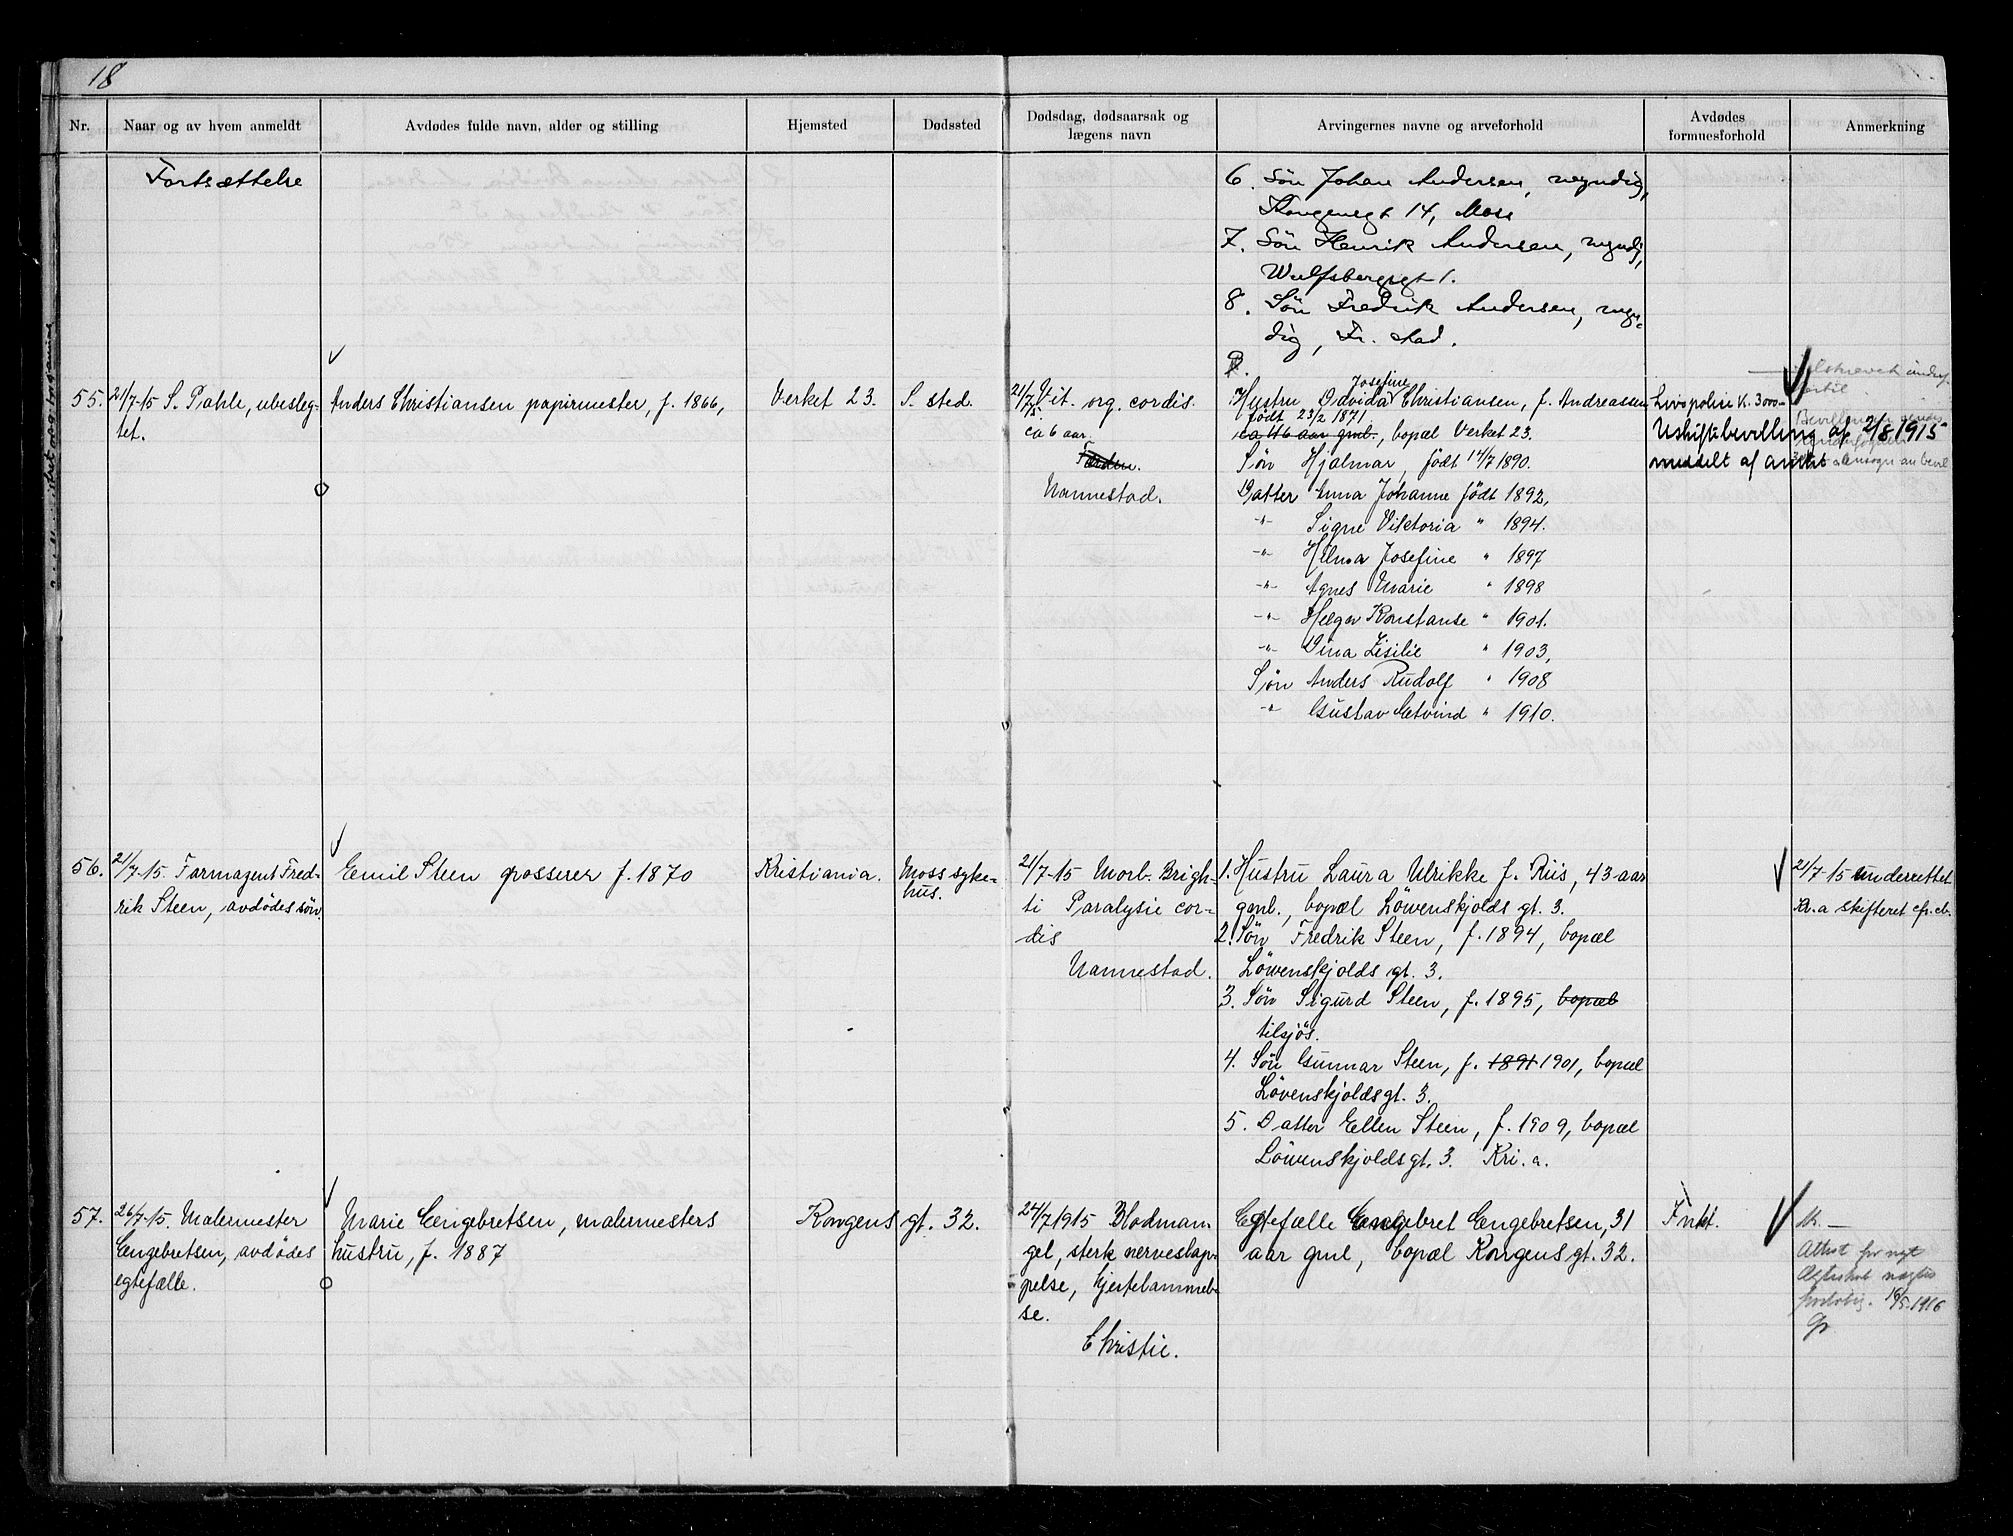 18
Nr.
Naar og av hvem anmeldt
Avdødes fulde navn, alder og stilling
Hjemsted
Dødssted
Dødsdag, dødsaarsak og
lægens navn
Arvingernes navne og arveforhold
Avdødes
formuesforhold
Anmerkning
Fortsættelse
6. Søn Johan Andersen, myndig,
Kongensgt 14, Moss
7. Søn Henrik Andersen, myndig,
Wulfsbergsgt 1.
8. Søn Fredrik Andersen, myn-
dig, Fr.stad.
55.
21/7-15 S. Dahle, ubesleg-
tet.
Anders Christiansen papirmester, f. 1866,
Verket 23.
S. sted.
21/7 15 Vit. org. cordis.
ca 6 aar.
Nannestad.
Josefine
Hustru Odvida Christiansen, f. Andreassen
født 23/2 1871
ca 46 aar gml., bopæl Verket 23.
Søn Hjalmar, født 14/7 1890.
Datter Anna Johanne født 1892,
-"- Signe Viktoria " 1894.
-"- Hilma Josefine " 1897
-"- Agnes Marie " 1898
-"- Helga Konstanse " 1901.
-"- Dina Zisilie " 1903,
Søn Anders Rudolf " 1908
-"- Gustav " 1910.
Livspolise K. 3000-
Uskiftebevilling af 2/8 1915
meddelt af amtet
56.
21/7-15. Farmagent Fred-
rik Steen, avdødes søn.
Emil Steen grosserer f. 1870
Kristiania.
Moss syke-
hus.
21/7-15 Morb. Brigh-
ti Paralysie cor-
dis
Nannestad.
1. Hustru Laura Ulrikke f. Riis, 43 aar
gml., bopæl Löwenskjolds gt. 3.
2. Søn Fredrik Steen, f. 1894, bopæl
Löwenskjolds gt. 3.
3. Søn Sigurd Steen, f. 1895, bopæl
tilsjös.
4. Søn Gunnar Steen, f. 1891 1901, bopæl
Lövenskjoldsgt. 3.
5. Datter Ellen Steen, f. 1909, bopæl
Löwenskjoldsgt. 3. Kri.a.
21/7-15 underrettet
Kr.a skifteret
57.
26/7-15. Malermester
Engebretsen, avdødes
egtefælle.
Marie Engebretsen, malermesters
hustru, f. 1887
Kongens gt. 32.
24/7 1915 Blodman-
gel, sterk nerveslap-
pelse, hjertelammel-
se.
Christie.
Egtefælle Engebret Engebretsen, 31
aar gml, bopæl Kongens gt. 32.
Fnkt.
Attest for nyt
Ægteskab
1916